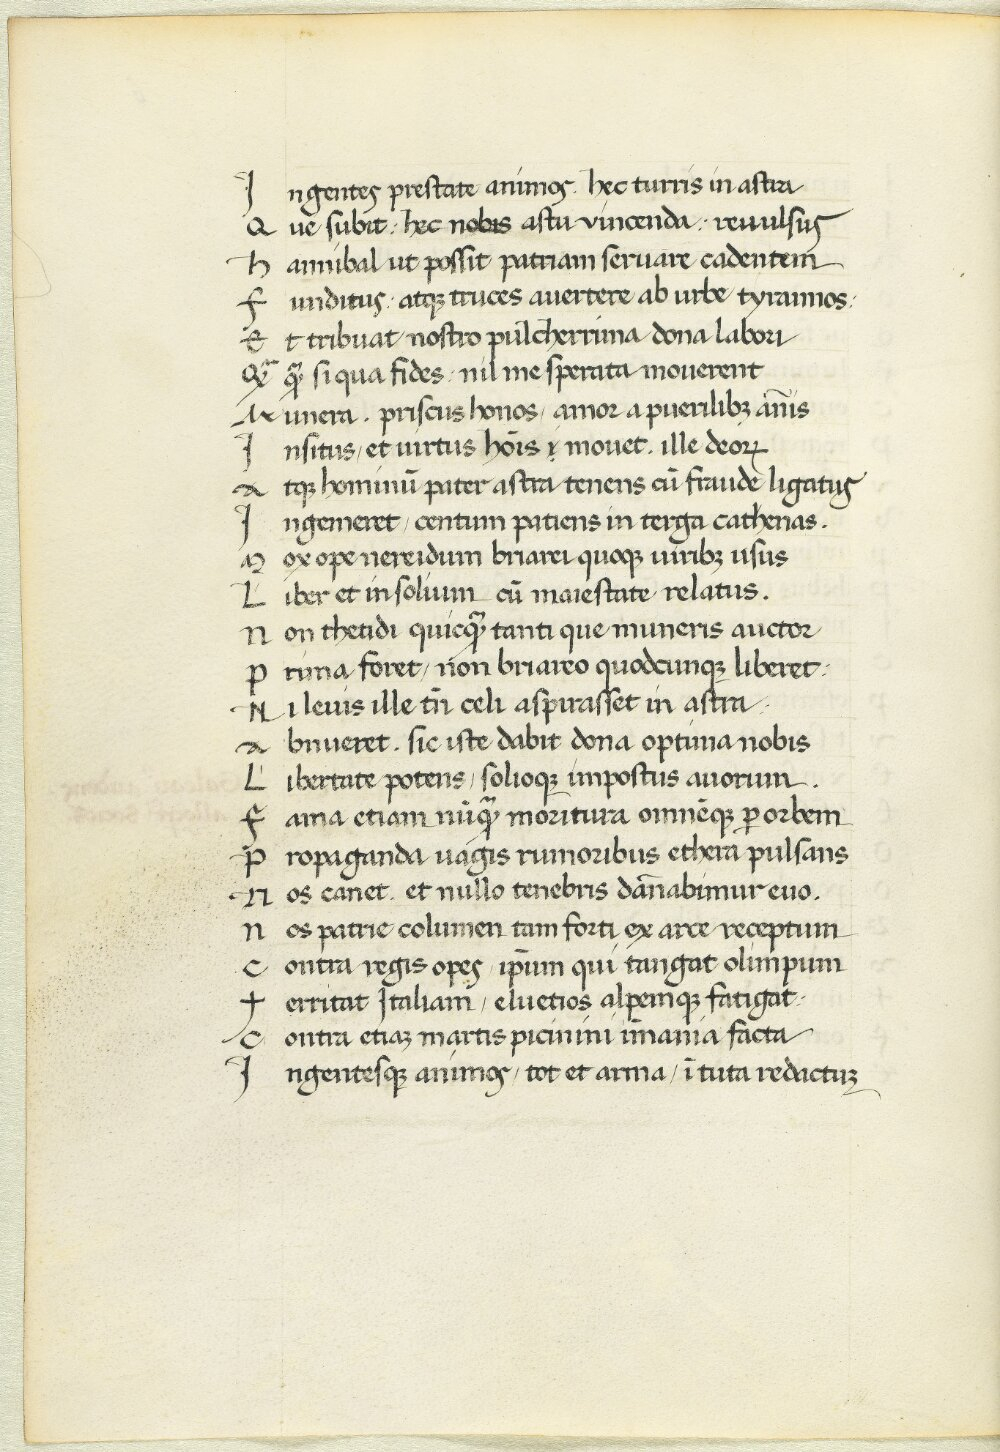 Ingentes prestate animos. hec turris in astra
Que subit: hec nobis astu vincenda: revulsus
hannibal ut possit patriam servare cadentem
funditus: atq; truces avertere ab urbe tyrannos:
Et tribuat nostro pulcherrima dona labori
Qq̃ȝ si qua fides / nil me sperata moverent
Munera. priscus honos / amor a puerilibȝ ãnis
Insitus / et virtus hoĩs movet. ille deoꝝ
atqȝ hominũ pater astra tenens cũ fraude ligatus
Ingemeret / centum patiens in terga cathenas.
mox ope nereidum briarei quoqȝ viribȝ usus
Liber et in solium cũ maiestate relatus.
non thetidi quicq̃ȝ tanti que muneris auctor
prima foret / non briareo quodcunqȝ liberet:
Ni levis ille tñ celi aspirasset in astra
abnueret. sic iste dabit dona optima nobis
Libertate potens / solioqȝ impostus avorum.
fama etiam nũq̃ȝ moritura omnẽqȝ ꝑ orbem
propaganda vagis rumoribus ethera pulsans
nos canet. et nullo tenebris dãnabimur evo.
nos patrie columen tam forti ex arce receptum
contra regis opes / ip̃um qui tangat olimpum
territat Italiam / elvetios alpemqȝ fatigat:
contra etiaȝ martis picinini ĩmania facta
Ingentesqȝ animos / tot et arma / ĩ tuta redactuȝ